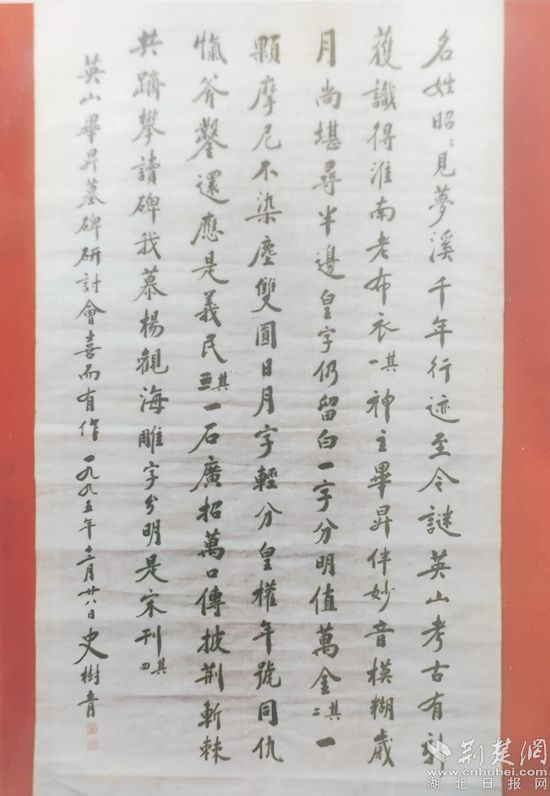 名姓昭〻見夢溪千年行迹至今謎英山考古有新
獲識得淮南老布衣其一神主畢昇伴妙音模糊歲
月尚堪尋半邊皇字仍留白一字分明值萬金其二一
顆摩尼不染塵雙圓日月字輕分皇權年號同仇
愾斧鑿還應是義民其三一石廣招萬口傳披荆斬棘
共躋攀讀碑我慕楊觀海雕字分明是宋刊其四
英山畢昇墓碑研討會喜而有作一九九五年十二月廿八日史樹青
荆楚網
www.cnhubei.com
湖北日报网